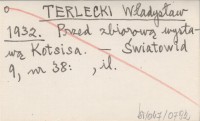 TERLECKI Władysław
1932. Przed zbiorową wysta-
wą Kotsisa. — Światowid
9, nr 38: , il.